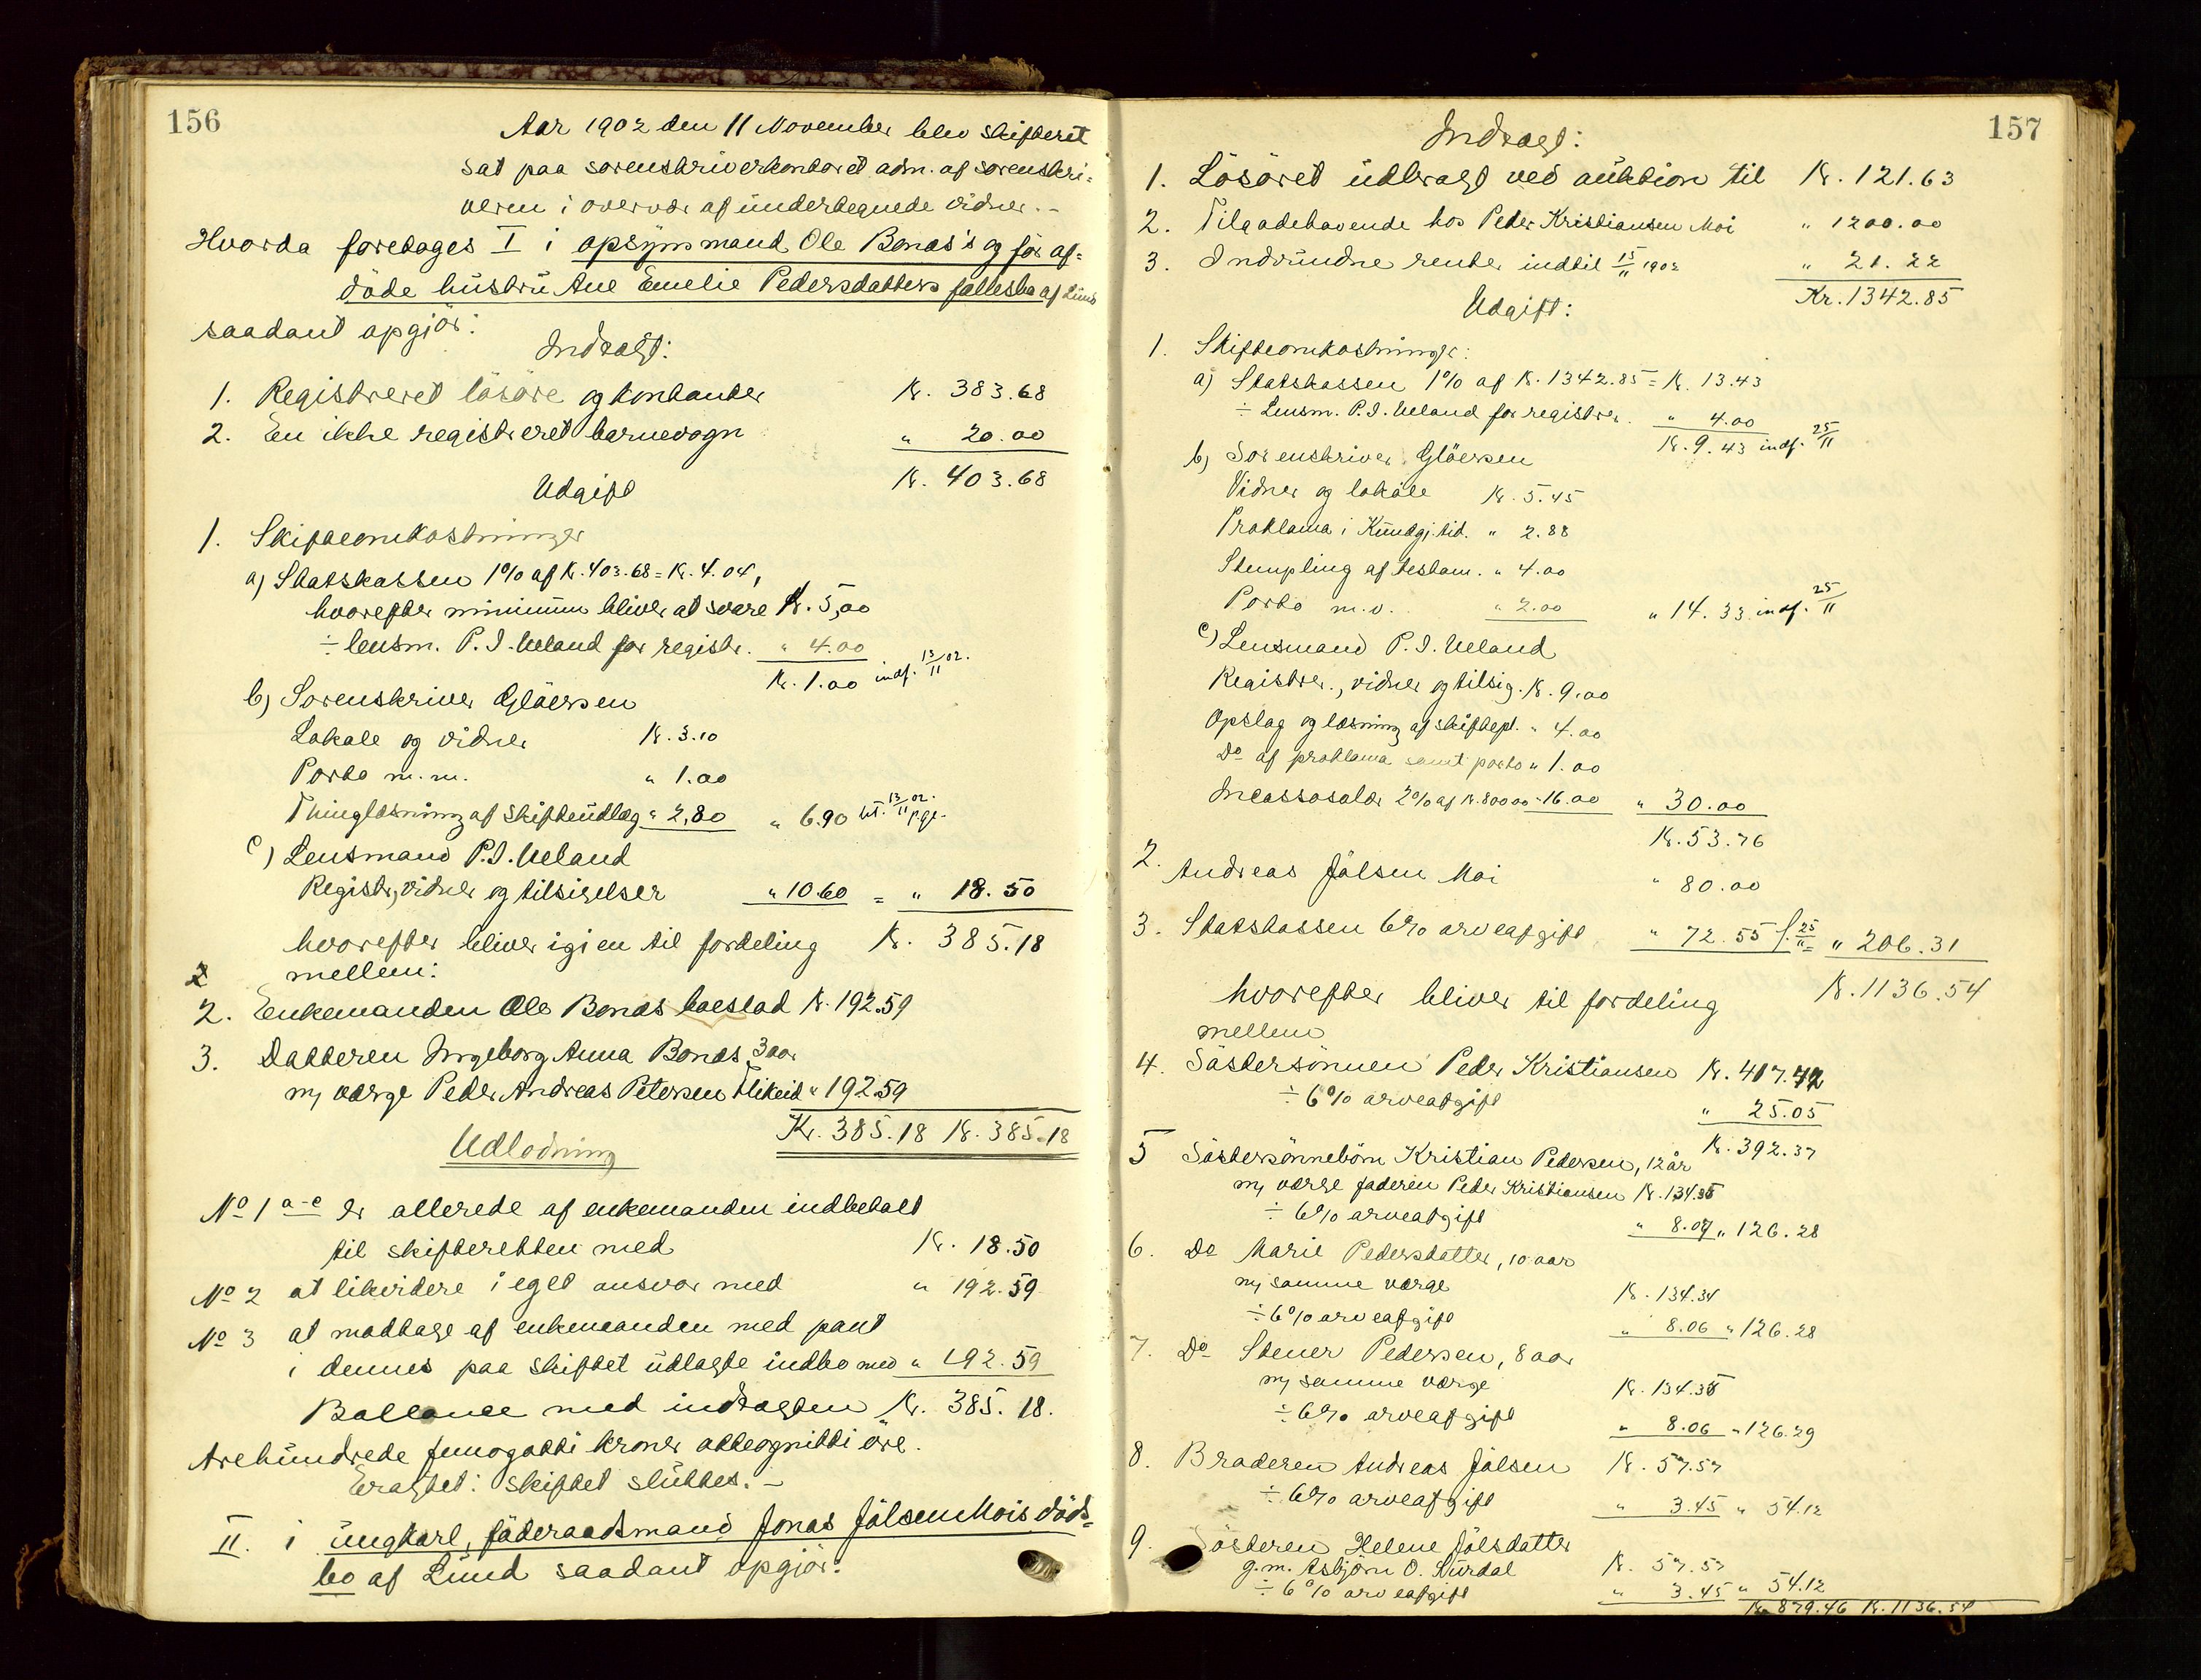 156
Aar 1902 den 11 November blev skifteret
sat paa sorenskriverkontoret adm. af sorenskri-
veren i overvær af undertegnede vidner. -
Hvorda foretoges I i opsynsmand Ole Bonæs's og før af-
døde hustru Ane Emelie Pedersdatters fællesbo af Lund
saadant opgjør:
Indtægt:
1. Registreret løsøre og kontanter Kr. 383.68
2. En ikke registreret barnevogn " 20.00
Kr. 403.68
Udgift
1. Skifteomkostninger
a) Statskassen 1% af Kr. 403.68 = Kr. 4.04,
hvorefter minimum bliver at svare Kr. 5,00
÷ lensm. P. I. Ueland for registr. " 4.00
Kr. 1.00 indf. 13/11 02.
b) Sorenskriver Gløersen
Lokale og vidner Kr. 3.10
Porto m.m. " 1.00
Thinglæsning af skifteudlæg " 2,80 " 6.90 13/11 02.
c) Lensmand P. I. Ueland
Registr, vidner og tilsigelser " 10.60 = " 18.50
hvorefter bliver igjen til fordeling Kr. 385.18
mellem:
2. Enkemanden Ole Bonæs boeslod Kr. 192.59
3. Datteren Ingeborg Anna Bonæs 3 aar
m/ værge Peder Andreas Petersen Flikeid " 192.59
Kr. 385.18 Kr. 385.18
Udlodning
No 1 a-c er allerede af enkemanden indbetalt
til skifteretten med Kr. 18.50
No 2 at likvidere i eget ansvar med " 192.59
No 3 at modtage af enkemanden med pant
i dennes paa skiftet udlagte indbo med " 192.59
Ballance med indtægten Kr. 385.18.
trehundrede femogotti kroner otteognitti øre.
Eragtet: skiftet sluttes. -
II. i ungkarl, føderaadsmand Jonas Jølsen Mois døds-
bo af Lund saadant opgjør:
157
Indtægt:
1. Løsøret udbragt ved auktion til Kr. 121.63
2. Tilgodehavende hos Peder Kristiansen Moi " 1200.00
3. Indvundne renter indtil 15/11 1902 " 21.22
Kr. 1342.85
Udgift:
1. Skifteomkostninger:
a) Statskassen 1% af Kr. 1342.85 = Kr. 13.43
÷ Lensm. P. I. Ueland for registrer. " 4.00
Kr. 9.43 indf. 25/11
b) Sorenskriver Gløersen
Vidner og lokale Kr. 5.45
Proklama i Kundgj. tid. " 2.88
Stempling af testam. " 4.00
Porto m.v. " 2.00 " 14.33 indf. 25/11
c) Lensmand P. I. Ueland
Registrer., vidner og tilsig. Kr. 9.00
Opslag og læsning af skiftepl. " 4.00
Do af proklama samt porto " 1.00
Incassosalær 2% af Kr. 800.00 - 16.00 " 30.00
Kr. 53.76
2. Andreas Jølsen Moi " 80.00
3. Statskassen 6% arveafgift " 72.55 f. 25/11 = " 206.31
hvorefter bliver til fordeling Kr. 1136.54
mellem
4. Søstersønnen Peder Kristiansen Kr. 417.42
÷ 6% arveafgift " 25.05
Kr. 392.37
5 Søstersønnebørn Kristian Pedersen, 12 år
m/ værge faderen Peder Kristiansen Kr. 134.35
÷ 6% arveafgift " 8.07 " 126.28
6. Do Marie Pedersdatter, 10 aar
m/ samme værge Kr. 134.34
÷ 6% arveafgift " 8.06 " 126.28
7. Do Stener Pedersen, 8 aar
m/ samme værge Kr. 134.35
÷ 6% arveafgift " 8.06 " 126.29
8. Broderen Andreas Jølsen Kr. 57.57
÷ 6% arveafgift " 3.45 " 54.12
9. Søsteren Helene Jølsdatter
g.m. Asbjørn O. Surdal Kr. 57.57
÷ 6% arveafgift " 3.45 " 54.12
Kr. 879.46 Kr. 1136.54